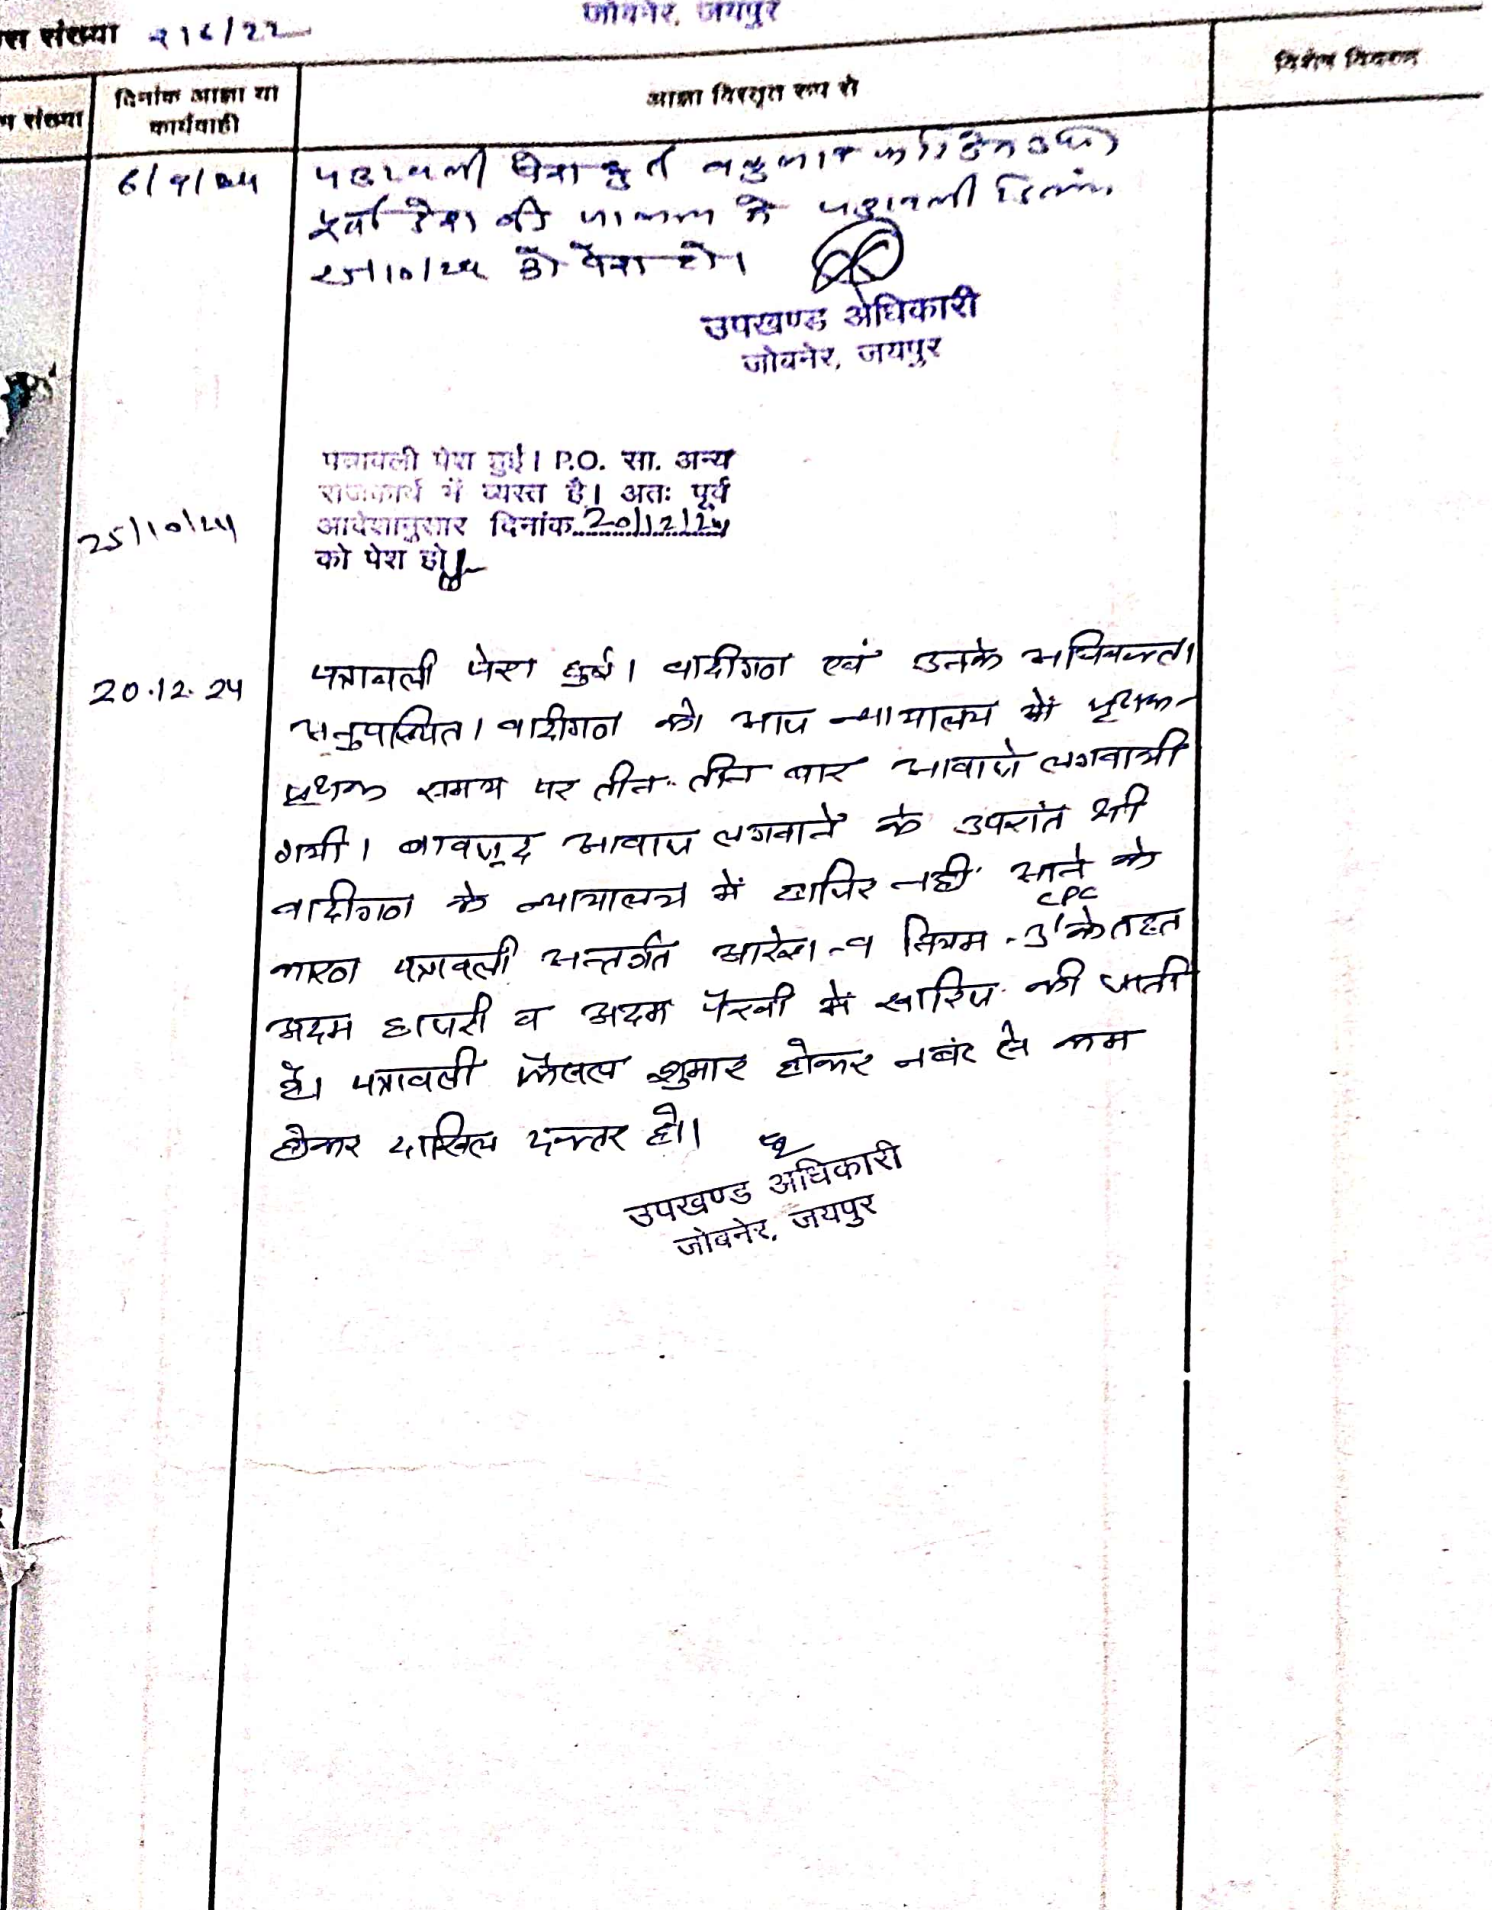 जोबनेर, जयपुर
संख्या 216/22
विशेष विवरण
संख्या
दिनांक आज्ञा या
कार्यवाही
आज्ञा विस्तृत रूप से
6/9/24
पत्रावली पेश हुई
पूर्वादेश की पालना में पत्रावली दिनांक
25/10/24 को पेश हो।
उपखण्ड अधिकारी
जोबनेर, जयपुर
पत्रावली पेश हुई। P.O. सा. अन्य
राजकार्य में व्यस्त है। अतः पूर्व
25/10/24
आदेशानुसार दिनांक 20/12/24
को पेश हो
20.12.24
पत्रावली पेश हुई। वादीगण एवं उनके अधिवक्ता
अनुपस्थित। वादीगण को आज न्यायालय में पृथक-
पृथक समय पर तीन-तीन बार आवाजे लगवायी
गयी। बावजूद आवाज लगवाने के उपरांत भी
वादीगण के न्यायालय में हाजिर नही आने के
कारण पत्रावली अन्तर्गत आदेश-9 नियम-3 CPC के तहत
अदम हाजरी व अदम पैरवी में खारिज की जाती
है। पत्रावली फैसल शुमार होकर नबंर से कम
होकर दाखिल दफ्तर हो।
उपखण्ड अधिकारी
जोबनेर, जयपुर